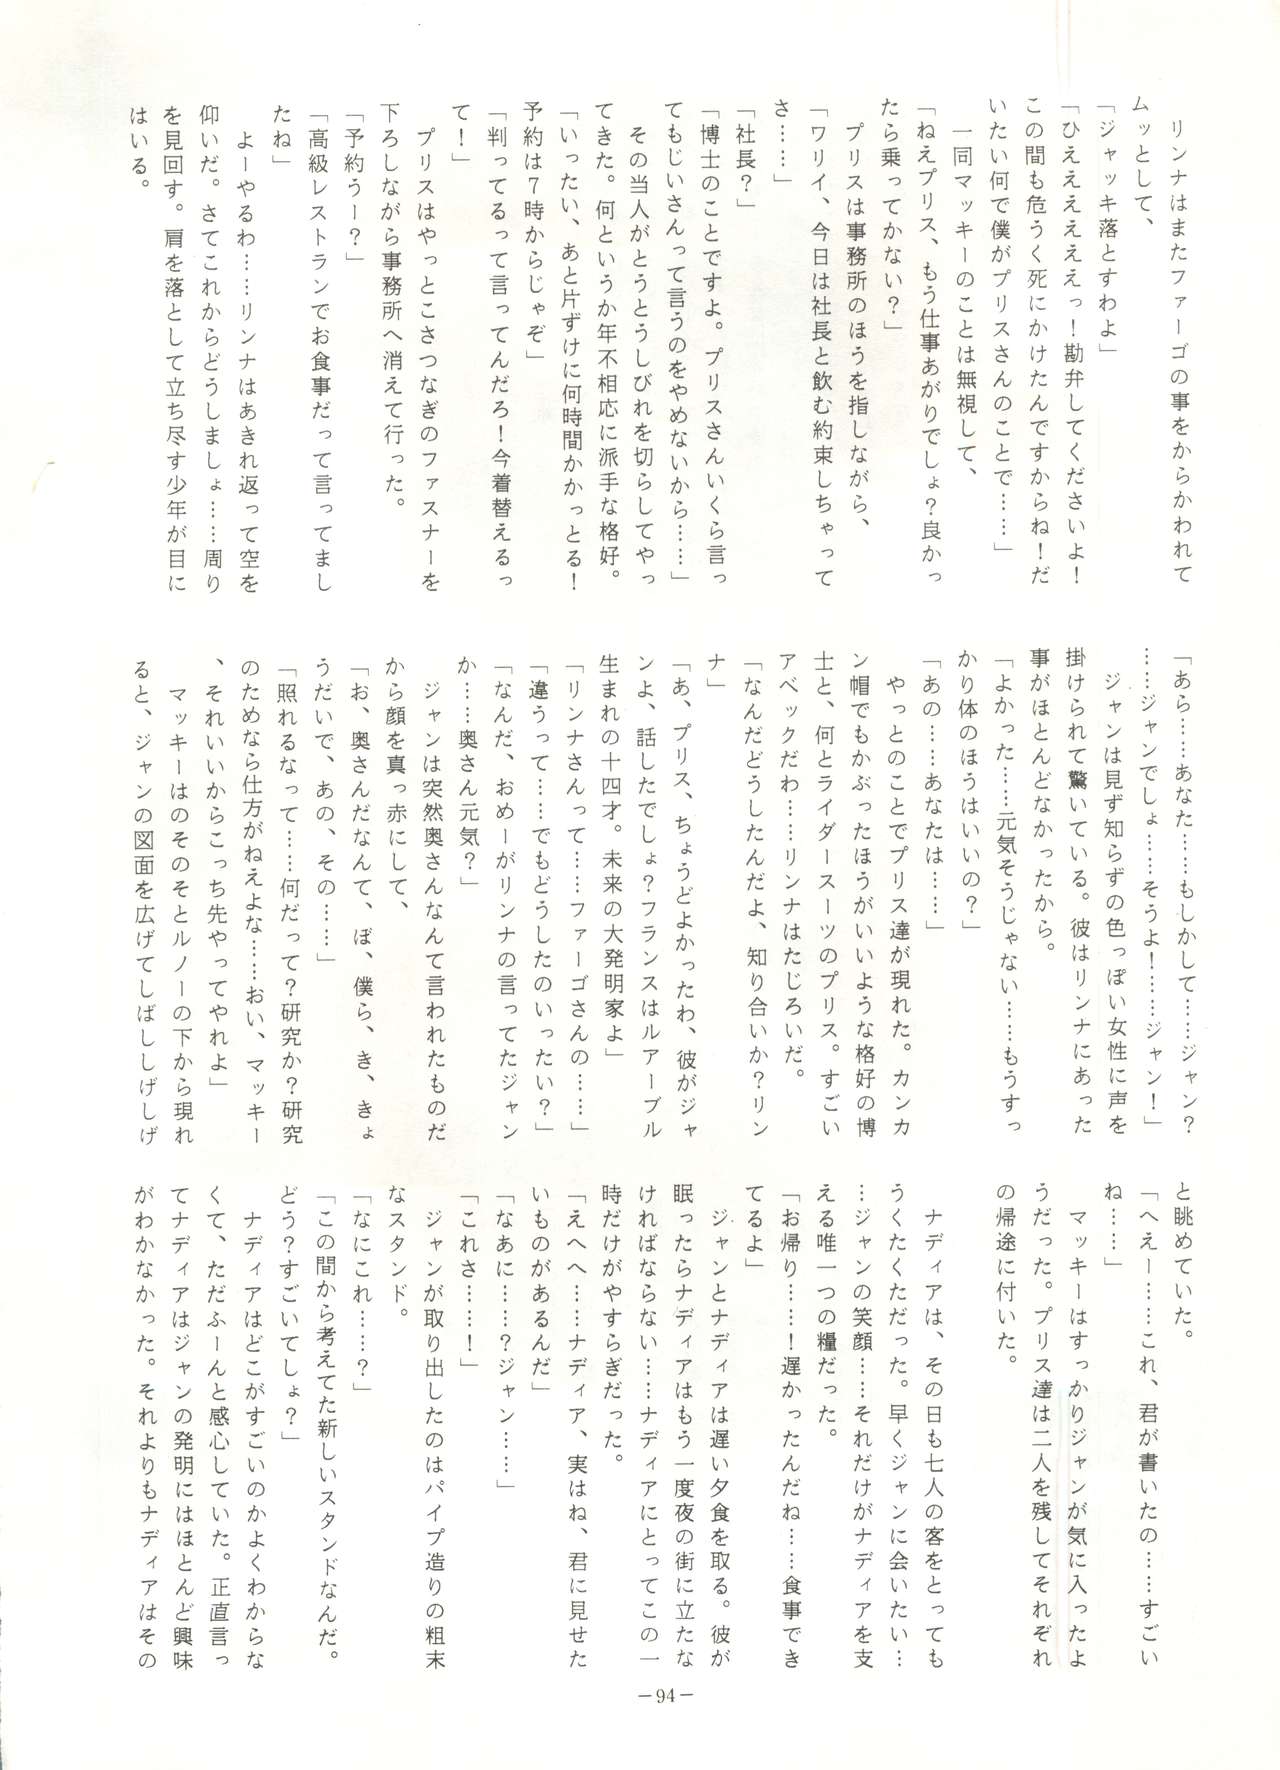 リンナはまたファーゴの事をからかわれて
ムッとして、
「ジャッキ落とすわよ」
「ひええええええっ！勘弁してくださいよ！
この間も危うく死にかけたんですからね！だ
いたい何で僕がプリスさんのことで……」
　一同マッキーのことは無視して、
「ねえプリス、もう仕事あがりでしょ？良かっ
たら乗ってかない？」
　プリスは事務所のほうを指しながら、
「ワリイ、今日は社長と飲む約束しちゃって
さ……」
「社長？」
「博士のことですよ。プリスさんいくら言っ
てもじいさんって言うのをやめないから……」
　その当人がとうとうしびれを切らしてやっ
てきた。何というか年不相応に派手な格好。
「いったい、あと片ずけに何時間かかっとる！
予約は７時からじゃぞ」
「判ってるって言ってんだろ！今着替えるっ
て！」
　プリスはやっとこさつなぎのファスナーを
下ろしながら事務所へ消えて行った。
「予約うー？」
「高級レストランでお食事だって言ってまし
たね」
　よーやるわ……リンナはあきれ返って空を
仰いだ。さてこれからどうしましょ……周り
を見回す。肩を落として立ち尽す少年が目に
はいる。
「あら……あなた……もしかして……ジャン？
……ジャンでしょ……そうよ！……ジャン！」
　ジャンは見ず知らずの色っぽい女性に声を
掛けられて驚いている。彼はリンナにあった
事がほとんどなかったから。
「よかった……元気そうじゃない……もうすっ
かり体のほうはいいの？」
「あの……あなたは……」
　やっとのことでプリス達が現れた。カンカ
ン帽でもかぶったほうがいいような格好の博
士と、何とライダースーツのプリス。すごい
アベックだわ……リンナはたじろいだ。
「なんだどうしたんだよ、知り合いか？リン
ナ」
「あ、プリス、ちょうどよかったわ、彼がジャ
ンよ、話したでしょ？フランスはルアーブル
生まれの十四才。未来の大発明家よ」
「リンナさんって……ファーゴさんの……」
「違うって……でもどうしたのいったい？」
「なんだ、おめーがリンナの言ってたジャン
か……奥さん元気？」
　ジャンは突然奥さんなんて言われたものだ
から顔を真っ赤にして、
「お、奥さんだなんて、ぼ、僕ら、き、きょ
うだいで、あの、その……」
「照れるなって……何だって？研究か？研究
のためなら仕方がねえよな……おい、マッキー
、それいいからこっち先やってやれよ」
　マッキーはのそのそとルノーの下から現れ
ると、ジャンの図面を広げてしばししげしげ
と眺めていた。
「へえー……これ、君が書いたの……すごい
ね……」
　マッキーはすっかりジャンが気に入ったよ
うだった。プリス達は二人を残してそれぞれ
の帰途に付いた。
　ナディアは、その日も七人の客をとっても
うくたくただった。早くジャンに会いたい…
…ジャンの笑顔……それだけがナディアを支
える唯一つの糧だった。
「お帰り……！遅かったんだね……食事でき
てるよ」
　ジャンとナディアは遅い夕食を取る。彼が
眠ったらナディアはもう一度夜の街に立たな
ければならない……ナディアにとってこの一
時だけがやすらぎだった。
「えへへ……ナディア、実はね、君に見せた
いものがあるんだ」
「なあに……？ジャン……」
「これさ……！」
　ジャンが取り出したのはパイプ造りの粗末
なスタンド。
「なにこれ……？」
「この間から考えてた新しいスタンドなんだ。
どう？すごいてしょ？」
　ナディアはどこがすごいのかよくわからな
くて、ただふーんと感心していた。正直言っ
てナディアはジャンの発明にはほとんど興味
がわかなかった。それよりもナディアはその
－94－